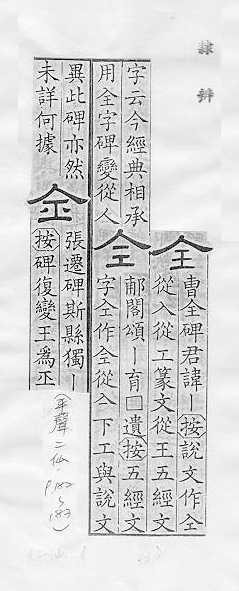 隸辨
全
曹全碑君諱丨按說文作仝
從入從工篆文從王五經文
字云今經典相承
用全字碑變從人
仝
郙閣頌丨育□遺按五經文
字全作仝從人下工與說文
異此碑亦然
未詳何據
張遷碑斯縣獨丨
按碑復變王爲
(平聲二仙.
P.182~183)